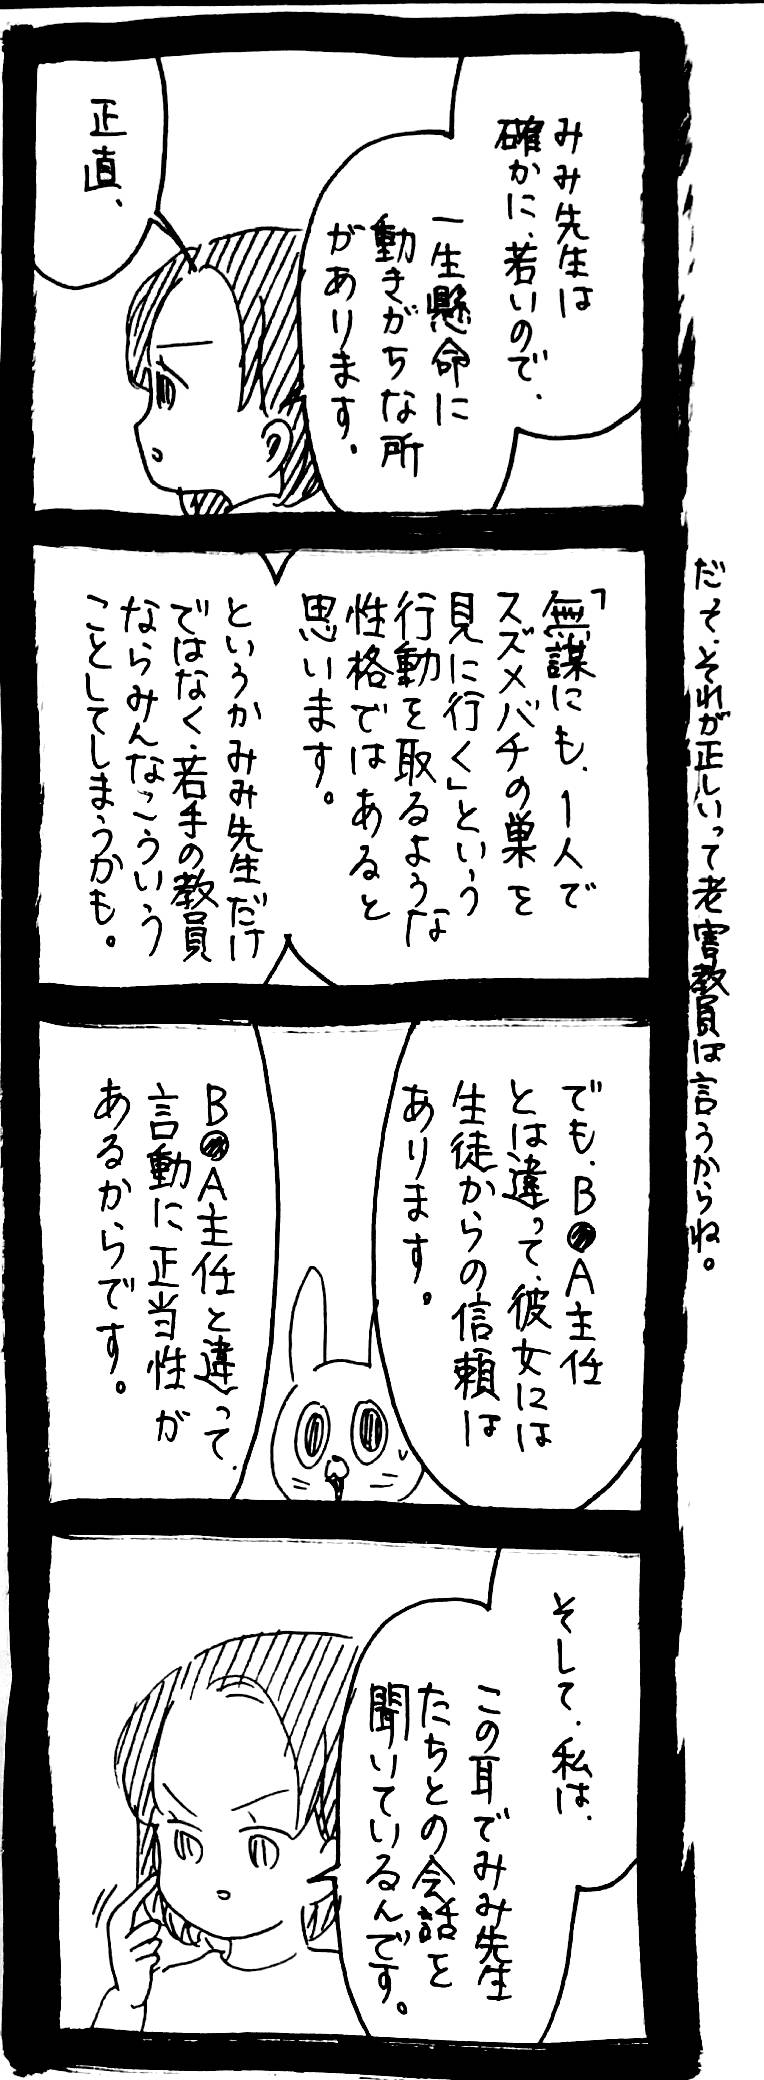 みみ先生は
確かに、若いので、
一生懸命に
動きがちな所
があります。
正直、
「無謀にも、1人で
スズメバチの巣を
見に行く」という
行動を取るような
性格ではあると
思います。
というかみみ先生だけ
ではなく、若手の教員
ならみんなこういう
ことしてしまうかも。
だって、それが正しいって老害教員は言うからね。
でも、B●A主任
とは違って、彼女には
生徒からの信頼は
あります。
B●A主任と違って、
言動に正当性が
あるからです。
そして、私は、
この耳でみみ先生
たちとの会話を
聞いているんです。